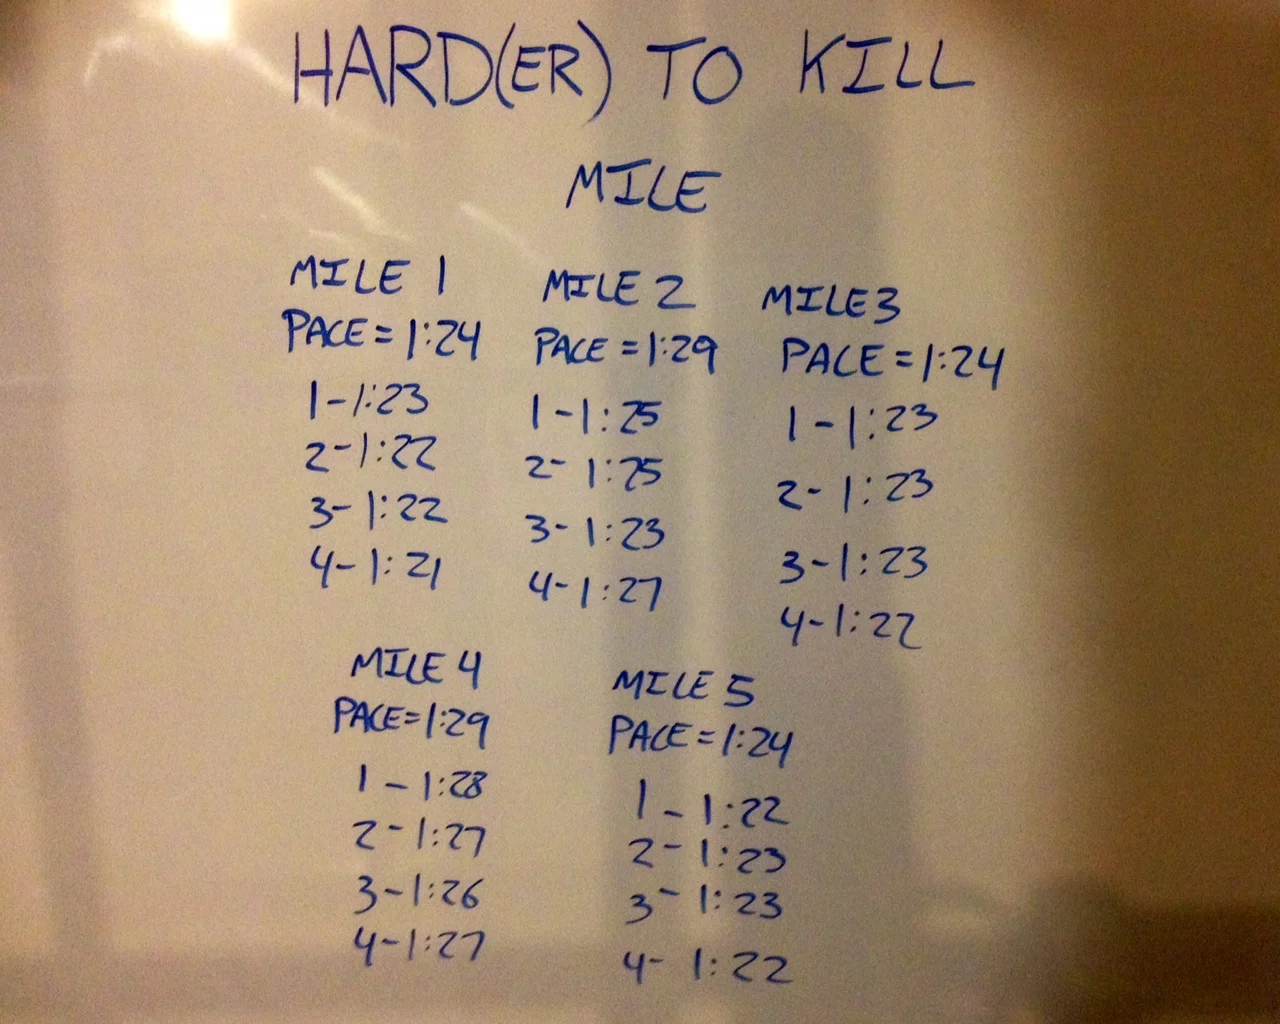 HARD(ER) TO KILL
MILE
MILE 1
PACE = 1:24
1-1:23
2-1:22
3-1:22
4-1:21
MILE 2
PACE = 1:29
1-1:25
2-1:25
3-1:23
4-1:27
MILE 3
PACE = 1:24
1-1:23
2-1:23
3-1:23
4-1:22
MILE 4
PACE = 1:29
1-1:28
2-1:27
3-1:26
4-1:27
MILE 5
PACE = 1:24
1-1:22
2-1:23
3-1:23
4-1:22